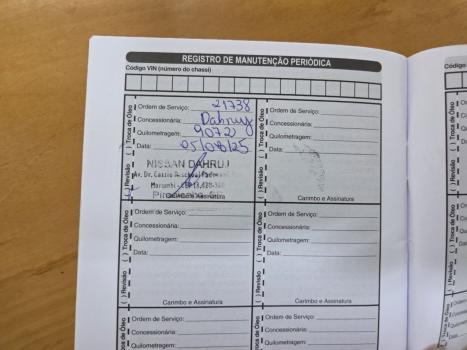 REGISTRO DE MANUTENÇÃO PERIÓDICA
Código VIN (número do chassi)
Código
( ) Revisão ( ) Troca de Óleo
Ordem de Serviço: 21738
Concessionária: Dahruj
Quilometragem: 9072
Data: 05/08/25
NISSAN DAHRUJ
Av. Dr. Cassio
Morumbi - CEP 13.420-
Carimbo e Assinatura
( ) Revisão ( ) Troca de Óleo
Ordem de Serviço:
Concessionária:
Quilometragem:
Data:
Carimbo e Assinatura
( ) Revisão ( ) Troca de Óleo
Ordem de Serviço:
Concessionária:
Quilometragem:
Data:
Carimbo e Assinatura
( ) Revisão ( ) Troca de Óleo
Ordem de Serviço:
Concessionária:
Quilometragem:
Data:
Carimbo e Assinatura
Troca de Óleo
Ordem de Serviço:
Concessionária:
Quilometragem:
Troca de Óleo
Ordem de Serviço:
Concessionária:
Quilometragem: